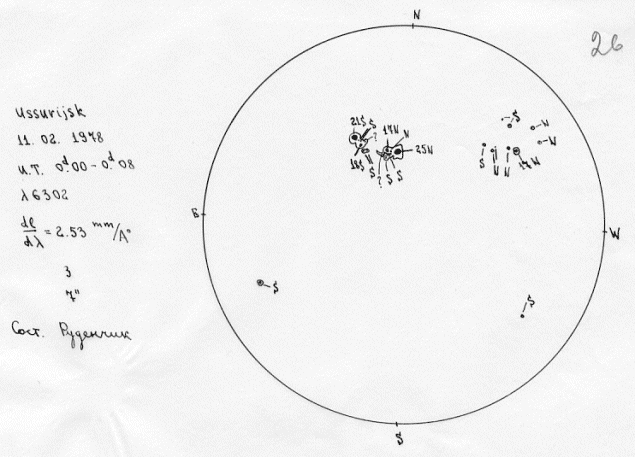 N
26
Ussurijsk
11. 02. 1978
U.T. 0ᵈ.00 - 0ᵈ.08
λ 6302
dl/dλ = 2.53 mm/A°
3
7"
Сост. Руденчик
21S S
?
17N
N
25N
18S
S
?
S
S
S
N
N
S
N
N
17N
E
W
S
S
S